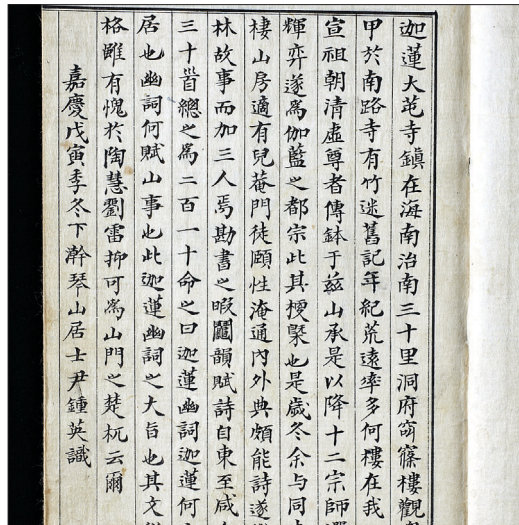 迦蓮大芚寺鎮在海南治南三十里洞府窈窱樓觀
甲於南路寺有竹迷舊記年紀荒遠率多何樓在我
宣祖朝清虛尊者傳鉢于玆山承是以降十二宗師
輝弈遂爲伽藍之都宗此其梗槩也是歲冬余与同
棲山房適有兒菴門徒頤性淹通內外典頗能詩遂
林故事而加三人焉勘書之暇鬮韻賦詩自東至咸
三十首總之爲二百一十命之曰迦蓮幽詞迦蓮何
居也幽詞何賦山事也此迦蓮幽詞之大旨也其文
格雖有愧於陶慧劉雷抑可爲山門之楚杌云爾
嘉慶戊寅季冬下澣琴山居士尹鍾英識